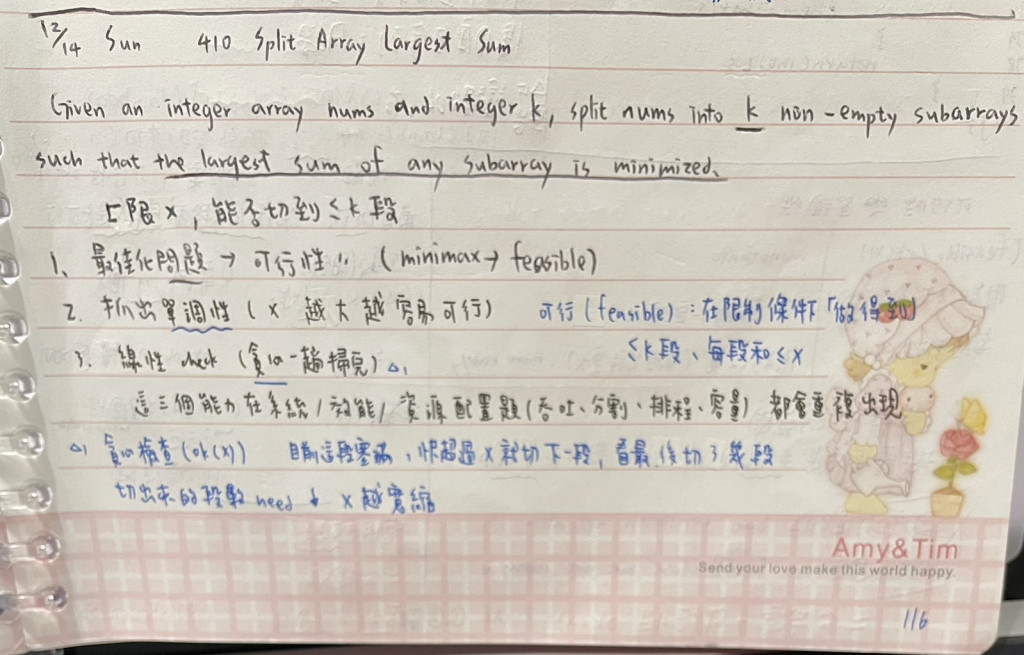 12/14 Sun 410 Split Array Largest Sum
Given an integer array nums and integer k, split nums into k non-empty subarrays
such that the largest sum of any subarray is minimized.
上限 x, 能否切到 ≤ k 段
1. 最佳化問題 → 可行性 〃 (minimax → feasible)
2. 抓出單調性 ( x 越大越容易可行) 可行 (feasible) : 在限制條件下「做得到」
≤ k 段、每段和 ≤ x
3. 線性 check (貪心一趟掃完) △1
這三個能力在系統/效能/資源配置題(吞吐、分割、排程、容量) 都會重複出現
△1 貪心檢查 (ok(x)) 目前這段塞滿, 快超過 x 就切下一段, 看最後切了幾段
切出來的段數 need ↓ x 越寬
Amy&Tim
Send your love make this world happy.
116